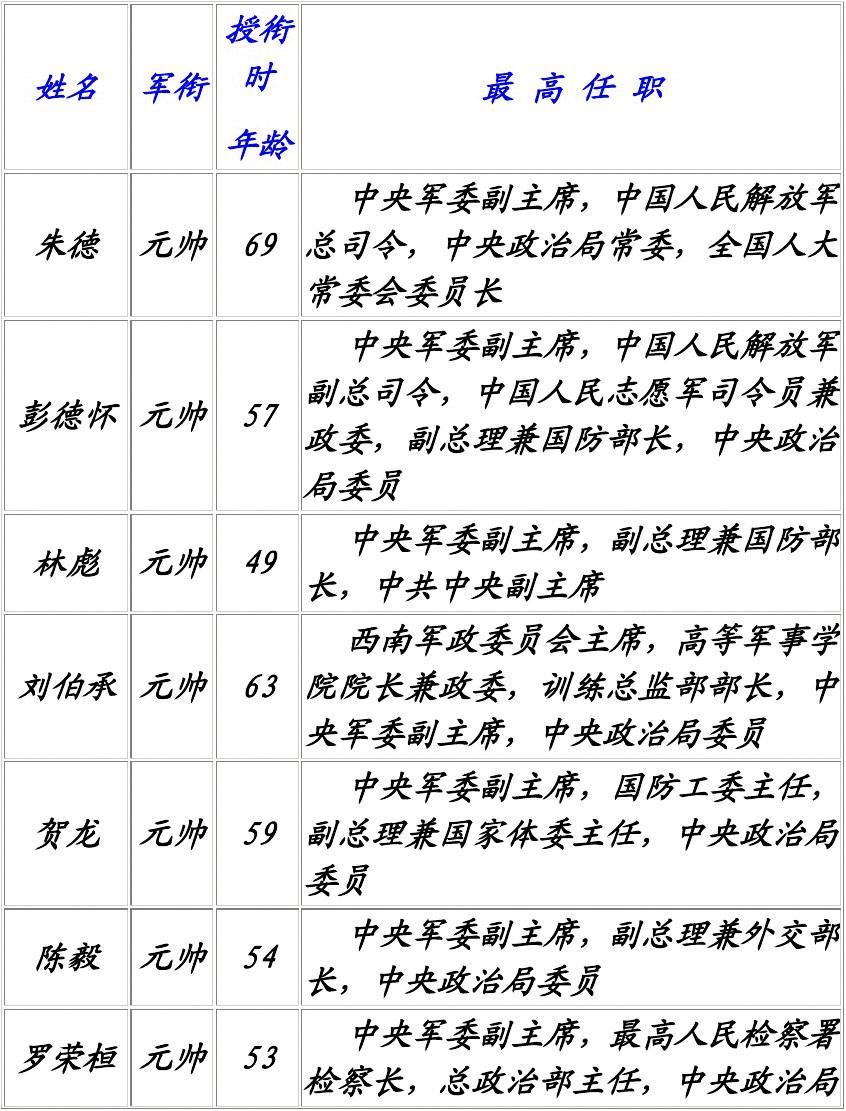 姓名 军衔 授衔时年龄 最高任职
朱德 元帅 69 中央军委副主席，中国人民解放军
总司令，中央政治局常委，全国人大
常委会委员长
彭德怀 元帅 57 中央军委副主席，中国人民解放军
副总司令，中国人民志愿军司令员兼
政委，副总理兼国防部长，中央政治
局委员
林彪 元帅 49 中央军委副主席，副总理兼国防部
长，中共中央副主席
刘伯承 元帅 63 西南军政委员会主席，高等军事学
院院长兼政委，训练总监部部长，中
央军委副主席，中央政治局委员
贺龙 元帅 59 中央军委副主席，国防工委主任，
副总理兼国家体委主任，中央政治局
委员
陈毅 元帅 54 中央军委副主席，副总理兼外交部
长，中央政治局委员
罗荣桓 元帅 53 中央军委副主席，最高人民检察署
检察长，总政治部主任，中央政治局